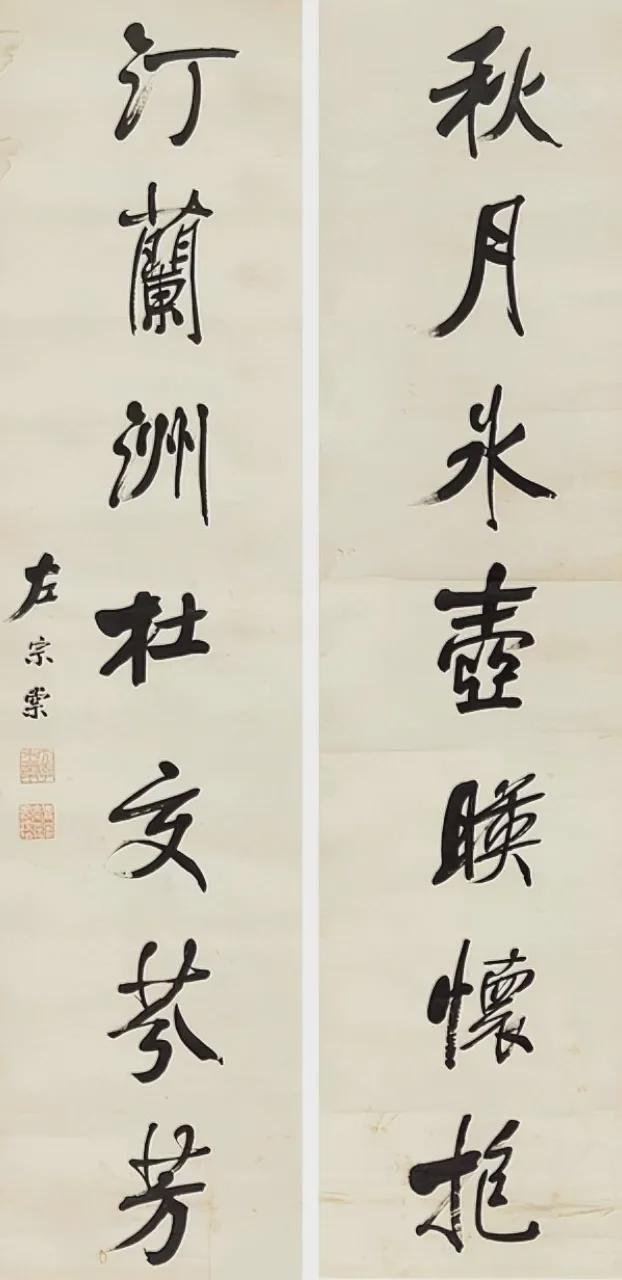 秋月氷壺暎懷抱
汀蘭洲杜交芬芳
左宗棠